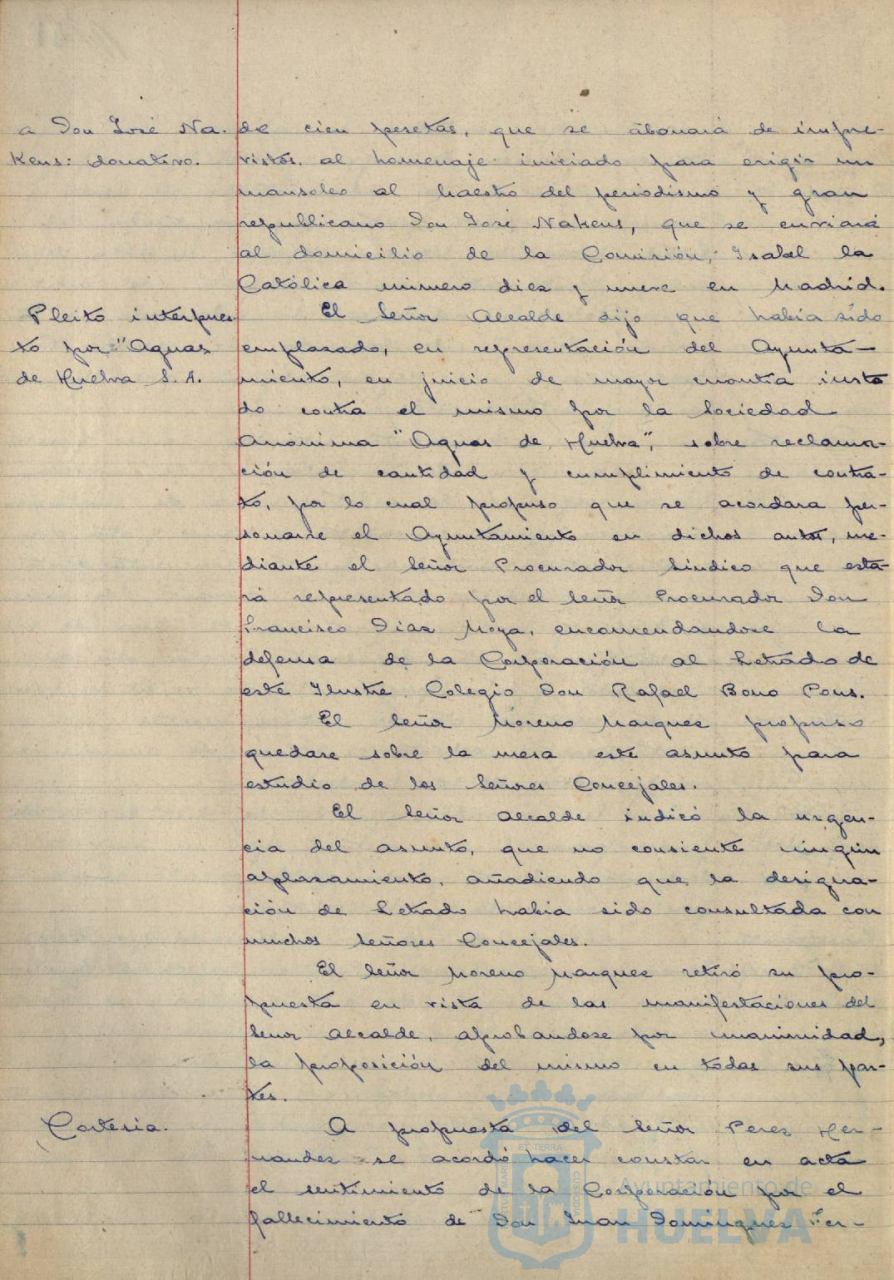 a Don José Na-
kens: donativo.
de cien pesetas, que se abonará de impre-
vistos, al homenaje iniciado para erigir un
mausoleo al Maestro del periodismo y gran
republicano Don José Nakens, que se enviará
al domicilio de la Comisión, Isabel la
Católica número diez y nueve en Madrid.
Pleito interpues-
to por "Aguas
de Huelva S.A.
El Señor Alcalde dijo que había sido
emplazado, en representación del Ayunta-
miento, en juicio de mayor cuantía insta
do contra el mismo por la Sociedad
Anónima "Aguas de Huelva", sobre reclama-
ción de cantidad y cumplimiento de contra-
to, por lo cual propuso que se acordara per-
sonarse el Ayuntamiento en dichos autos, me-
diante el Señor Procurador Síndico que esta-
rá representado por el Señor Procurador Don
Francisco Díaz Moya, encomendandose la
defensa de la Corporación al Letrado de
este Ilustre Colegio Don Rafael Bono Pons.
El Señor Moreno Marquez propuso
quedase sobre la mesa este asunto para
estudio de los Señores Concejales.
El Señor Alcalde indicó la urgen-
cia del asunto, que no consiente ningún
aplazamiento, añadiendo que la designa-
ción de Letrado había sido consultada con
muchos Señores Concejales.
El Señor Moreno Marquez retiró su pro-
puesta en vista de las manifestaciones del
Señor Alcalde, aprobandose por unanimidad,
la proposición del mismo en todas sus par-
tes.
Cortesia.
A propuesta del Señor Perez Her-
nandez se acordó hacer constar en acta
el sentimiento de la Corporación por el
fallecimiento de Don Juan Dominguez Fer-
Ayuntamiento de
HUELVA